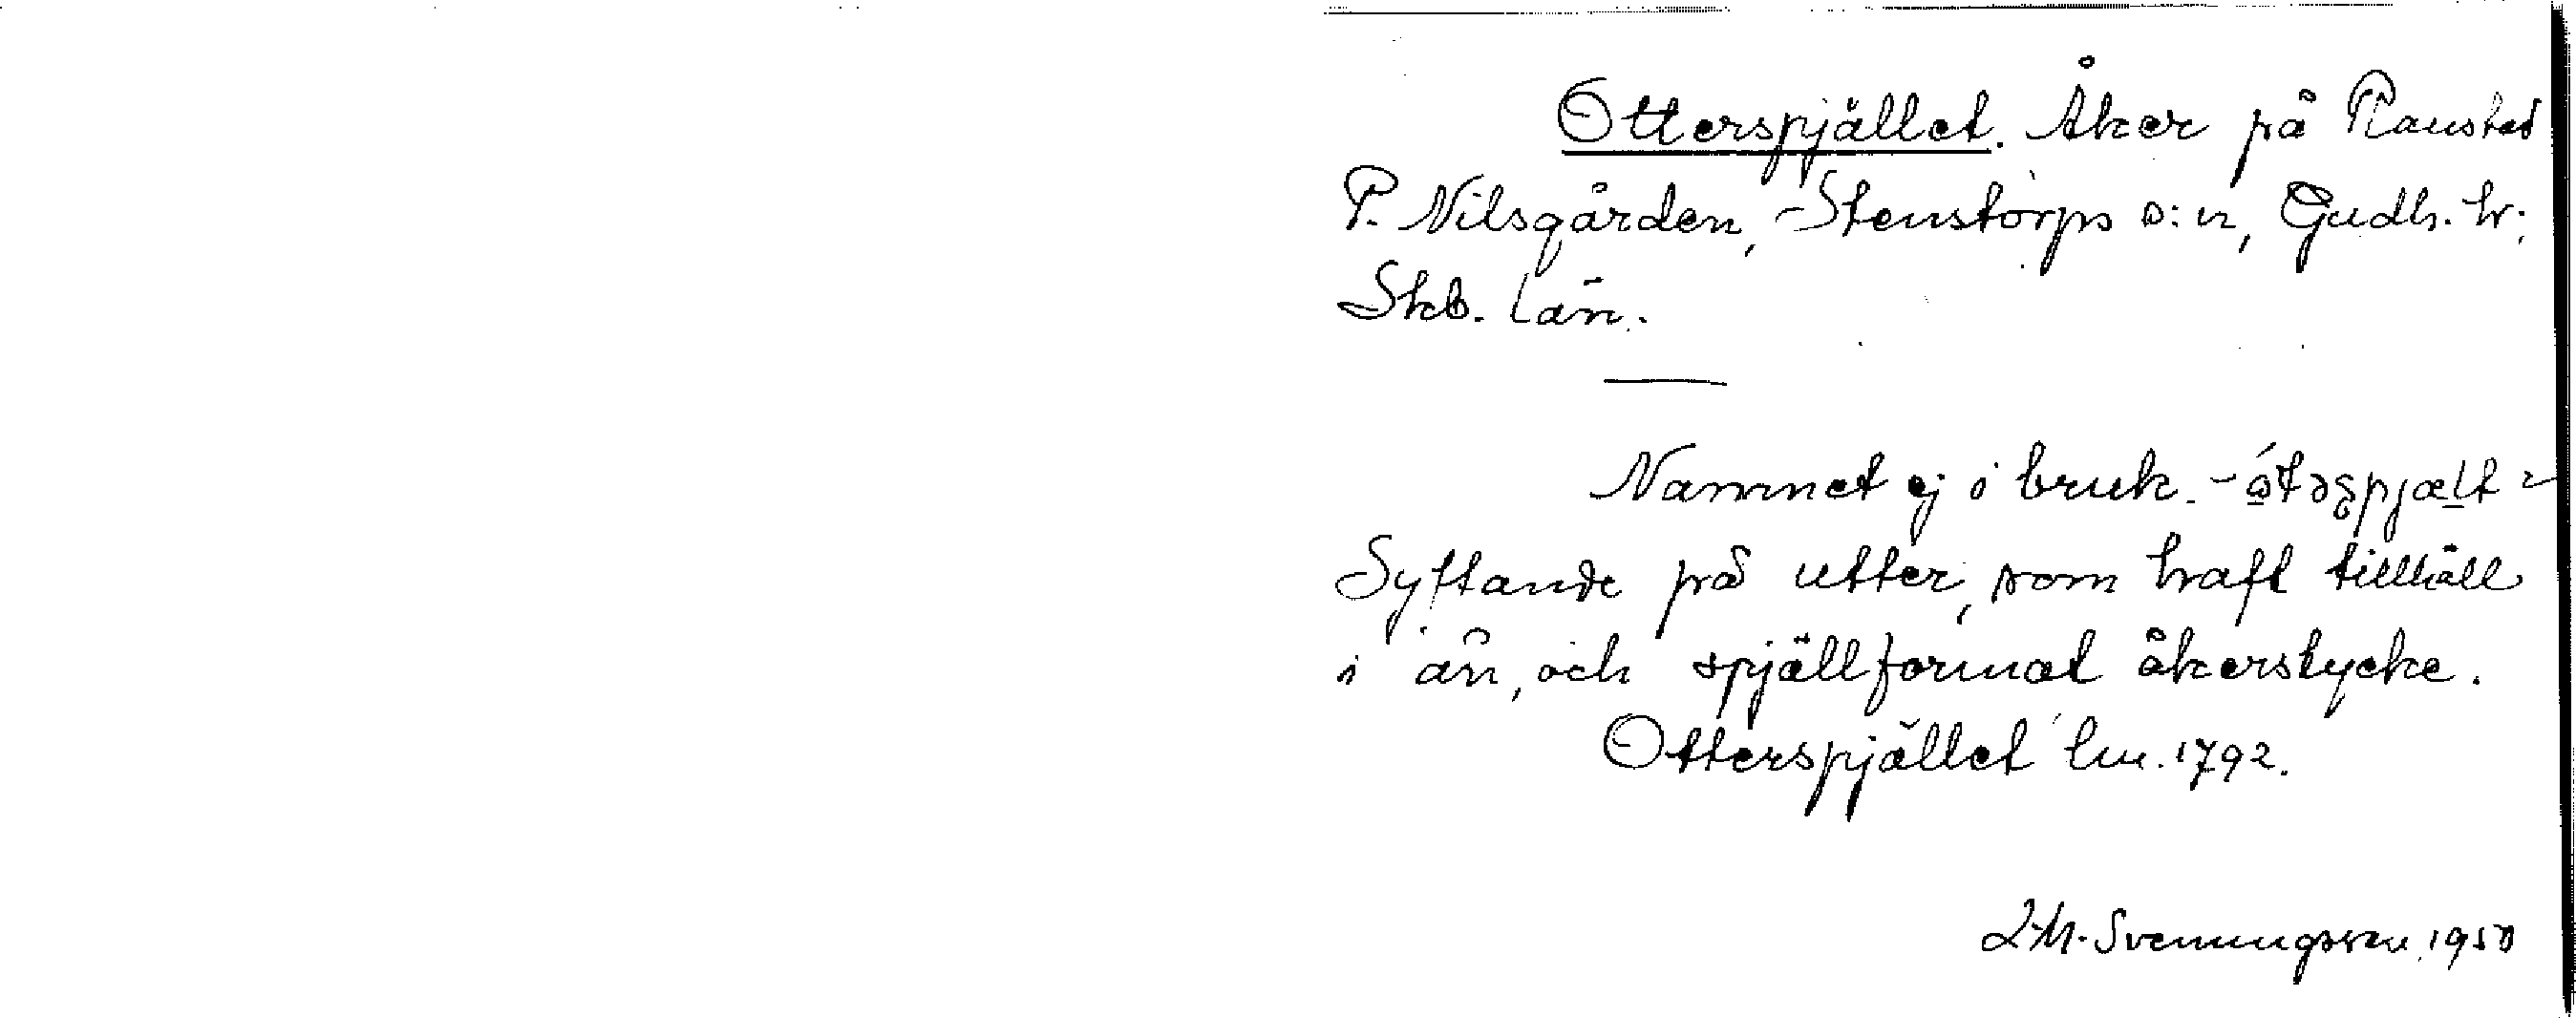 Otterspjället. Åker på Raustad
P. Nilsgården, Stenstorps s:n, Gudh. hr.
Skb. län.
Namnet ej i bruk. -
Syftande på utter, som haft tillhåll
i ån, och spjällformat åkerstycke.
Otterspjället lm. 1792.
L.M. Svenungsson 1950